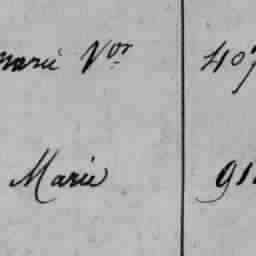 marie Vor 407
Marie 91